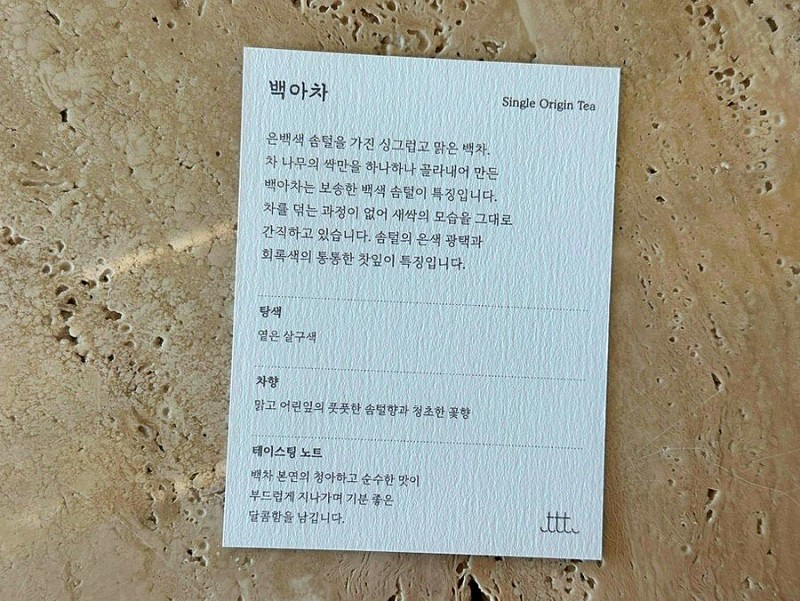 백아차
Single Origin Tea
은백색 솜털을 가진 싱그럽고 맑은 백차.
차 나무의 싹만을 하나하나 골라내어 만든
백아차는 보송한 백색 솜털이 특징입니다.
차를 덖는 과정이 없어 새싹의 모습을 그대로
간직하고 있습니다. 솜털의 은색 광택과
회록색의 통통한 찻잎이 특징입니다.
탕색
옅은 살구색
차향
맑고 어린잎의 풋풋한 솜털향과 청초한 꽃향
테이스팅 노트
백차 본연의 청아하고 순수한 맛이
부드럽게 지나가며 기분 좋은
달콤함을 남깁니다.